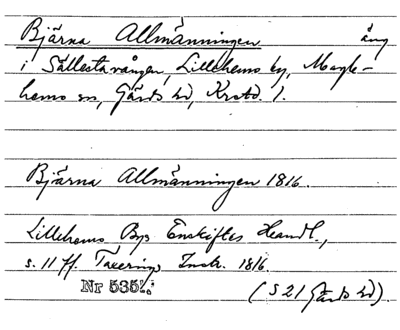 Bjärna Allmänningen äng
i Sällestavången, Lillehems by, Magle-
hems sn, Gärds hd, Krstd. l.
Bjärna Allmänningen 1816.
Lillehems Bys Enskiftes Handl.,
s. 11 ff. Taxerings Instr. 1816.
Nr 535
(S 21 Gärds hd).